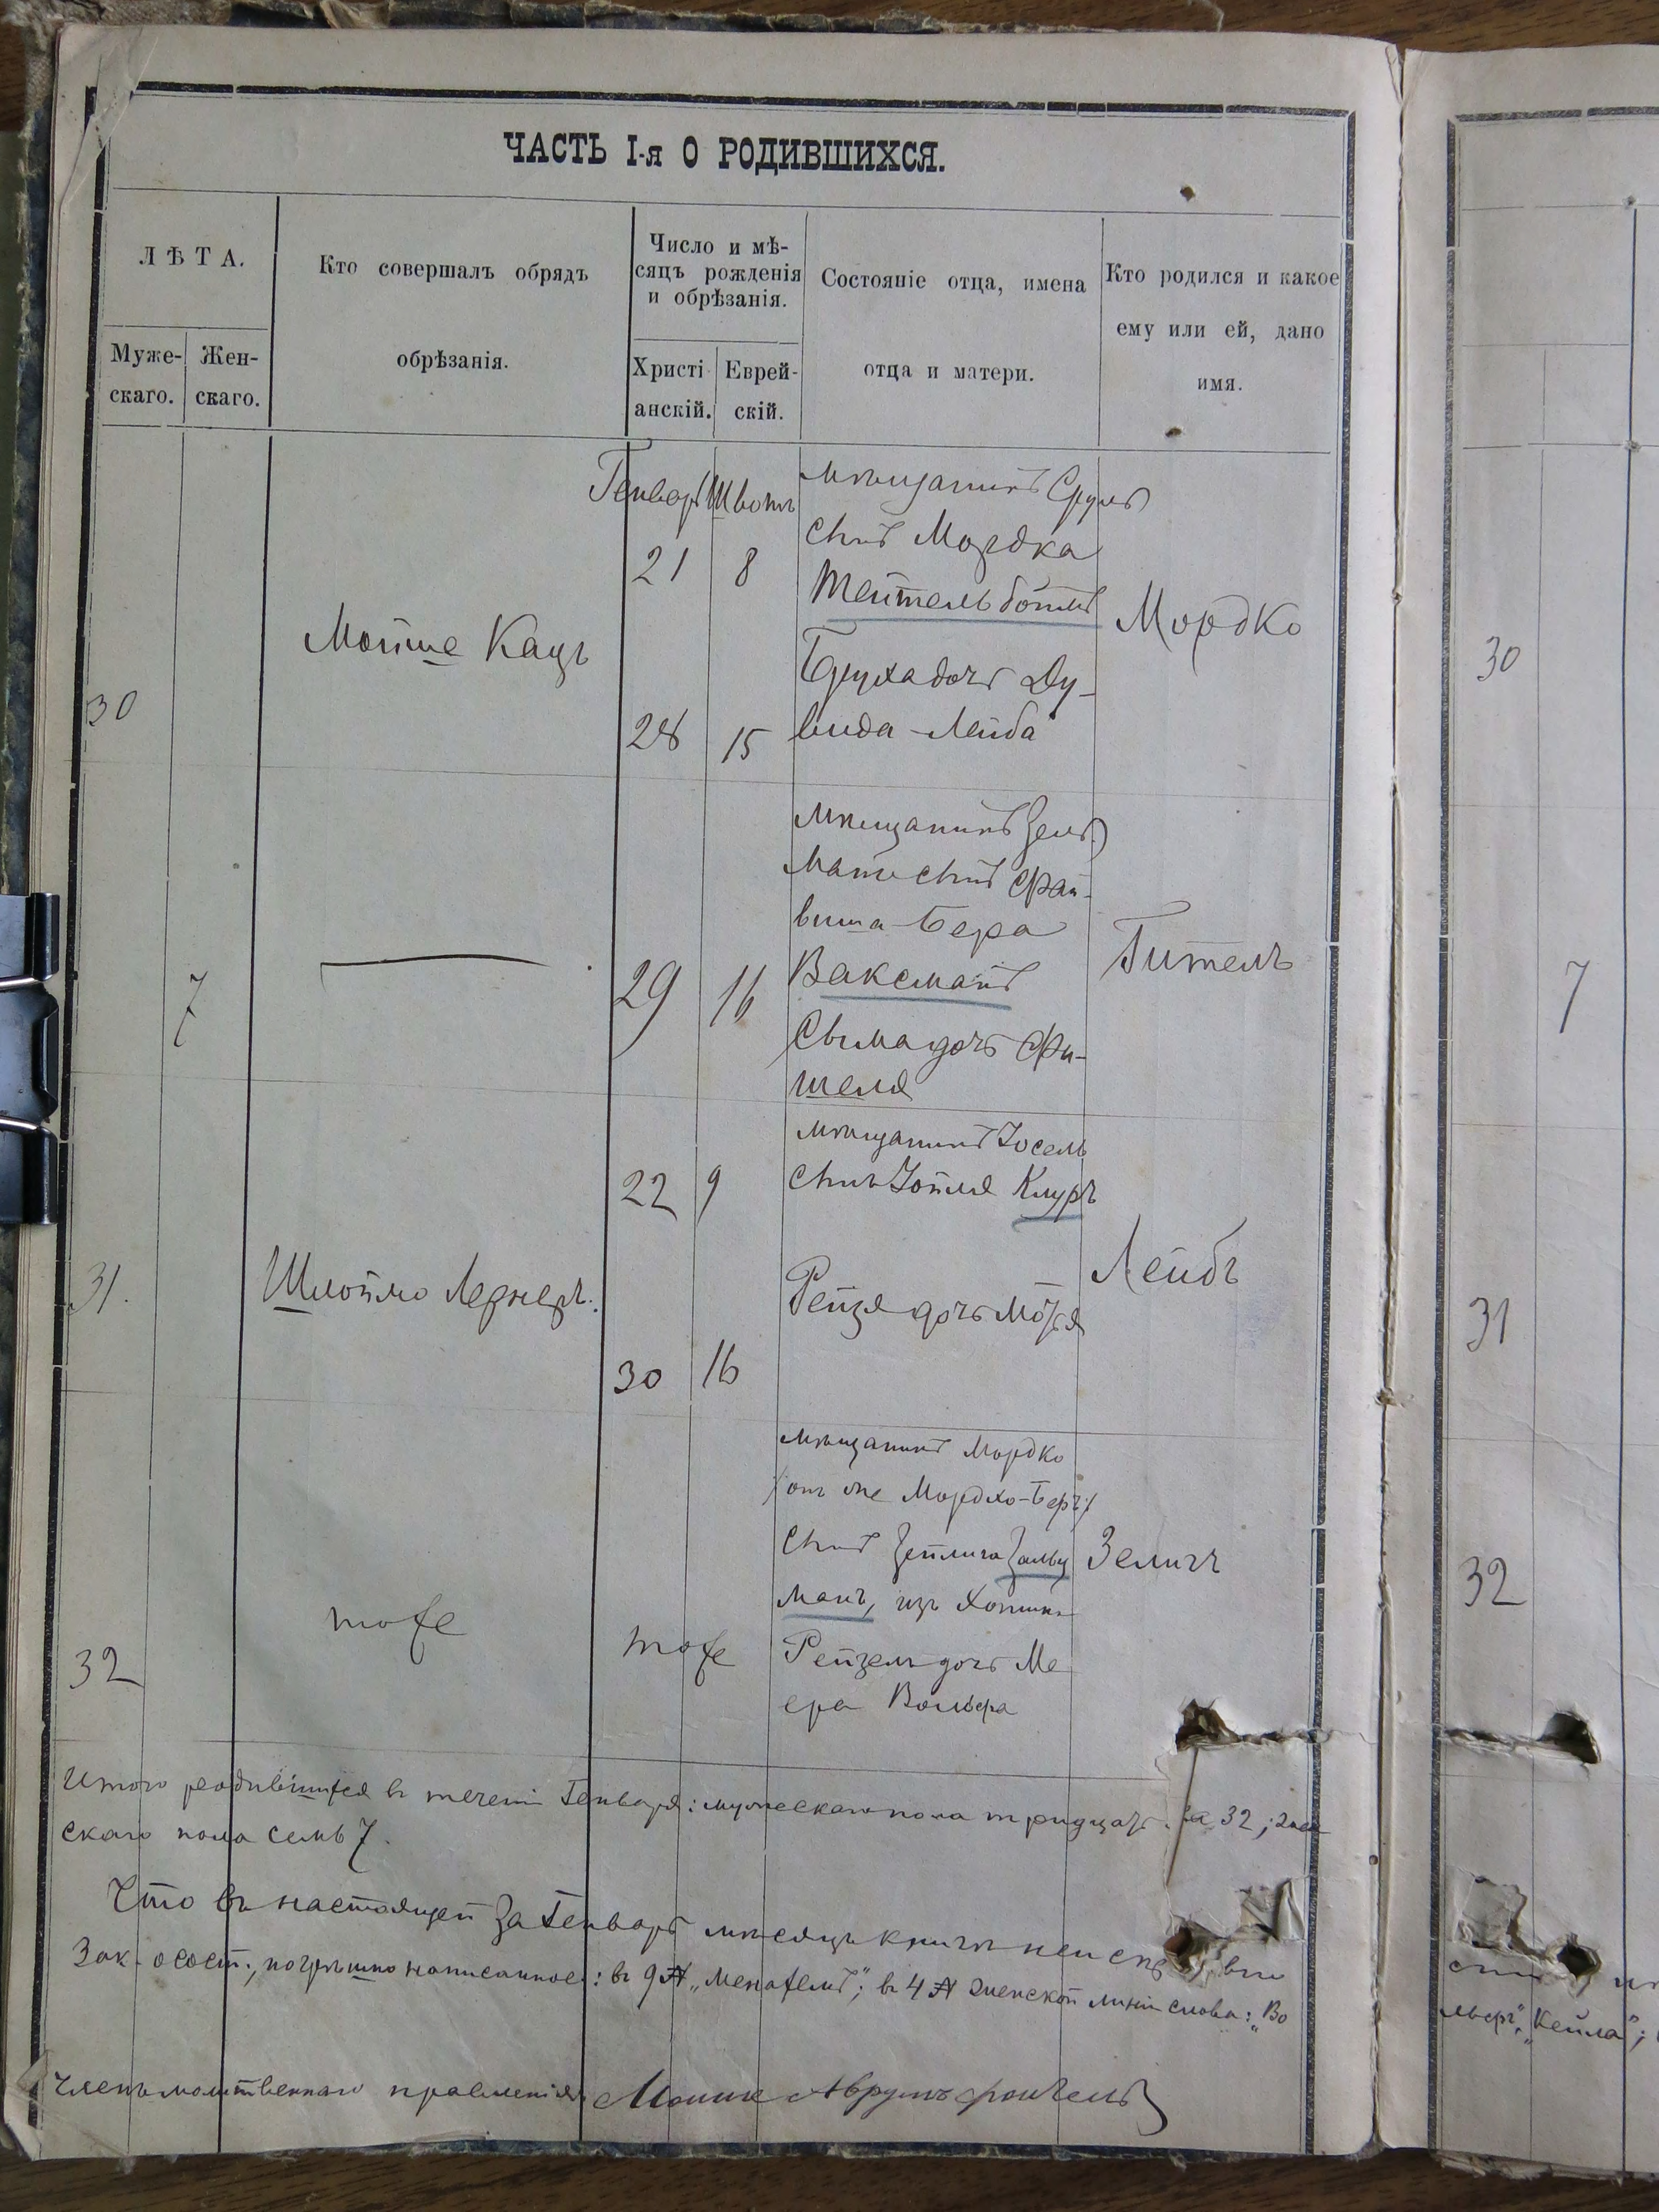 ЧАСТЬ I-я О РОДИВШИХСЯ.
ЛѢТА.
Муже-
скаго.
Жен-
скаго.
Кто совершалъ обрядъ
обрѣзанія.
Число и мѣ-
сяцъ рожденія
и обрѣзанія.
Христі
анскій.
Еврей-
скій.
Состояніе отца, имена
отца и матери.
Кто родился и какое
ему или ей, дано
имя.
30
Мойше Кацъ
Генварь
21
28
Швотъ
8
15
мѣщанинъ Сруль
сынъ Мордка
Тейтельботмъ
Бруха дочь Ду-
вида-Лейба
Мордко
7
29
16
мѣщанинъ Зель
мань сынъ Фай-
виша-Бера
Ваксманъ
Сыма дочь Фи-
шеля
Гитель
31.
Шлойме Лернеръ.
22
9
30
16
мѣщанинъ Іосель
сынъ Іойля
Рейзя дочь
Лейбъ
32
тоже
тоже
мѣщанинъ Мордко
онъ же Мордко-Беръ
сынъ Зейлига Зальц
манъ, изъ Хотина
Рейзель дочь Ме
ера
Зелигъ
Итого родившихся въ течени Генваря: мужескаго пола тридцать 32; жен
скаго пола семь 7.
Что въ настоящей за Генварь мѣсяцъ книгѣ
Зак. о сост., погрѣшно написанное: въ 9 № „Менахемъ"; въ 4 № женской линіи слова: „Во
Членъ молитвеннаго правленія Мошко Аврумъ
30
7
31
32
„Кейла";